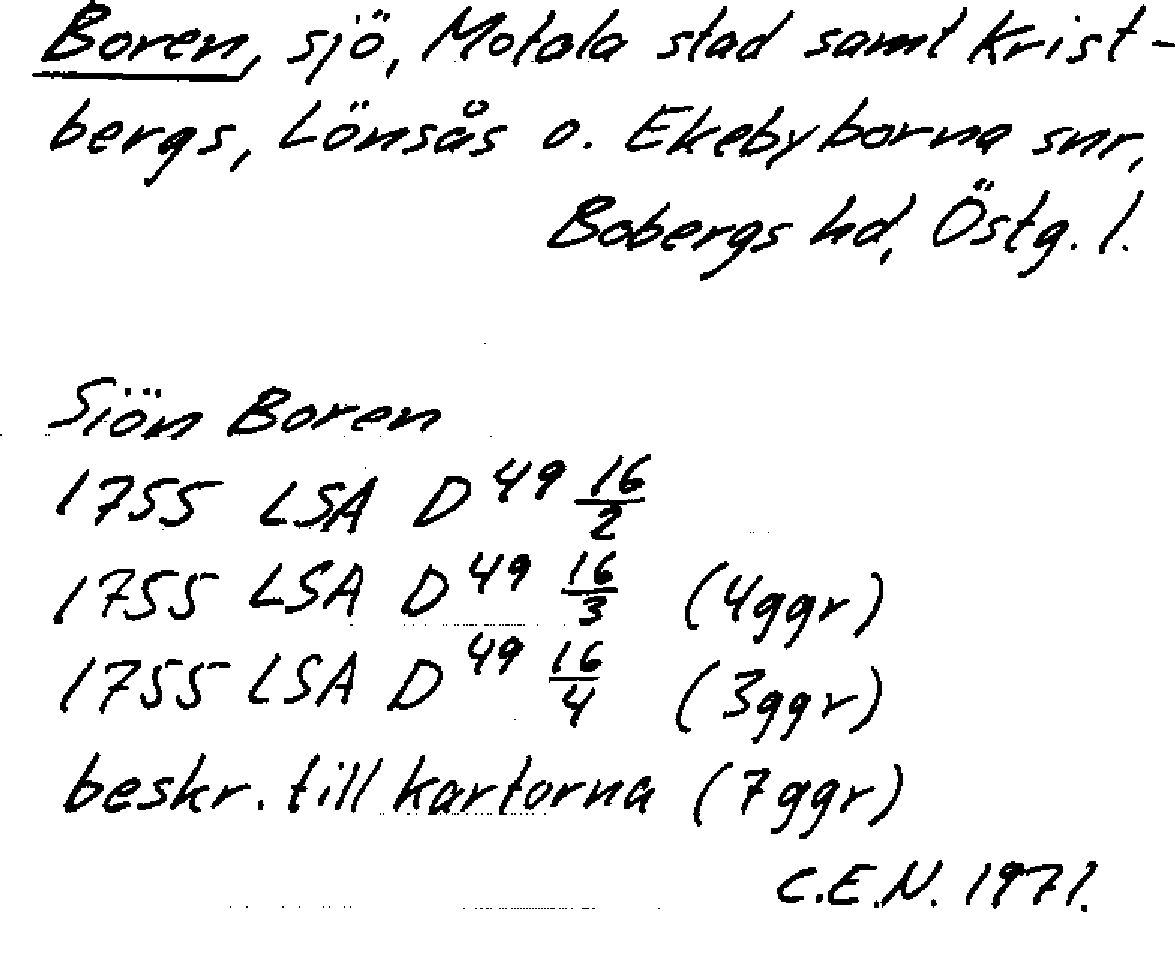 Boren, sjö, Motala stad samt Krist-
bergs, Lönsås o. Ekebyborna snr,
Bobergs hd, Östg. l.
Siön Boren
1755 LSA D 49 16/2
1755 LSA D 49 16/3 (4ggr)
1755 LSA D 49 16/4 (3ggr)
beskr. till kartorna (7ggr)
C.E.N. 1971.